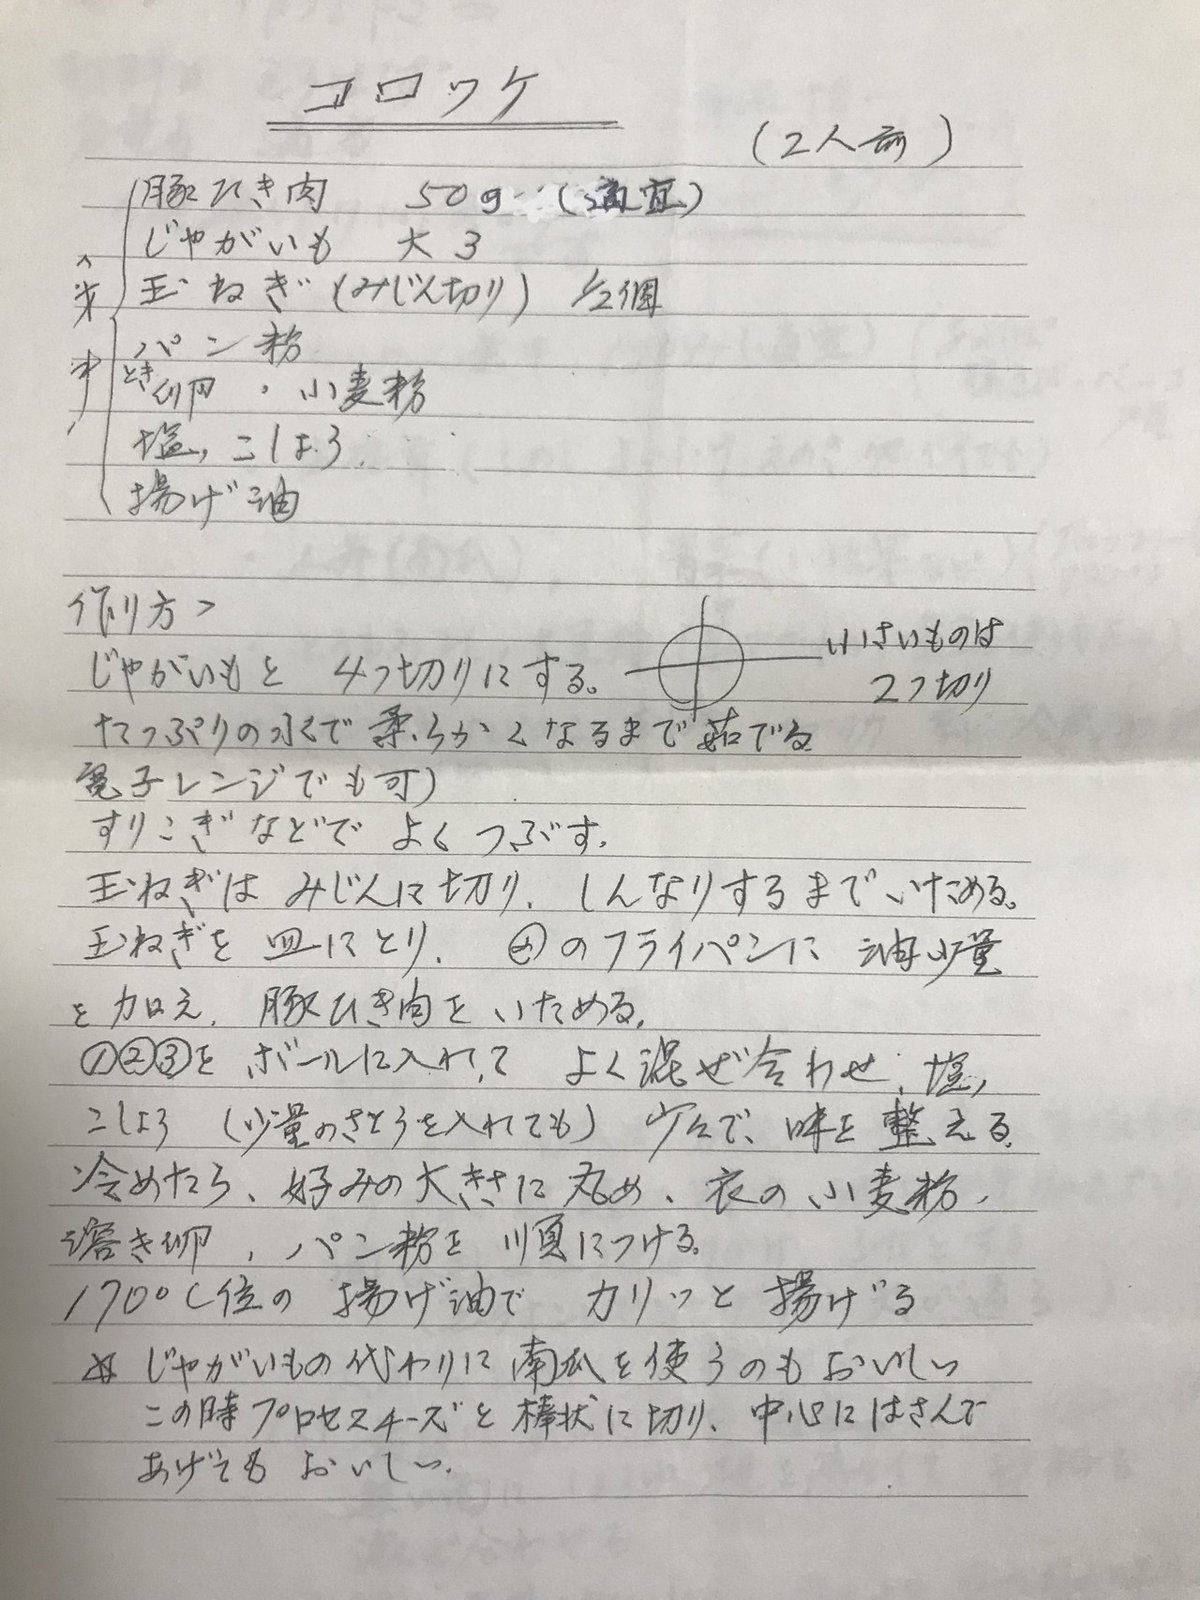 コロッケ
(2人前)
豚ひき肉 50g (適宜)
じゃがいも 大3
玉ねぎ(みじん切り) 1/2個
パン粉
とき卵・小麦粉
塩,こしょう
揚げ油
作り方>
じゃがいもを 4つ切りにする。
小さいものは
2つ切り
たっぷりの水で柔らかくなるまで茹でる
電子レンジでも可)
すりこぎなどで よくつぶす.
玉ねぎは みじんに切り,しんなりするまでいためる。
玉ねぎを 皿にとり, のフライパンに 油少量
を加え, 豚ひき肉をいためる,
①②③を ボールに入れて よく混ぜ合わせ,塩,
こしょう (少量のさとうを入れても) 少々で、味を整える,
冷めたら、好みの大きさに丸め、衣の小麦粉,
溶き卵,パン粉を 順につける。
170℃位の 揚げ油で カリッと揚げる
じゃがいもの代わりに南瓜を使うのもおいしい
この時プロセスチーズを棒状に切り,中心にはさんで
あげてもおいしい.